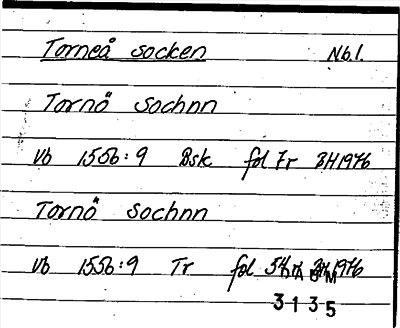 Torneå socken Nb.l.
Tornö sochnn
Vb 1556:9 Bsk fol 7r BH1976
Tornö sochnn
Vb 1556:9 Tr fol BH1976
3135